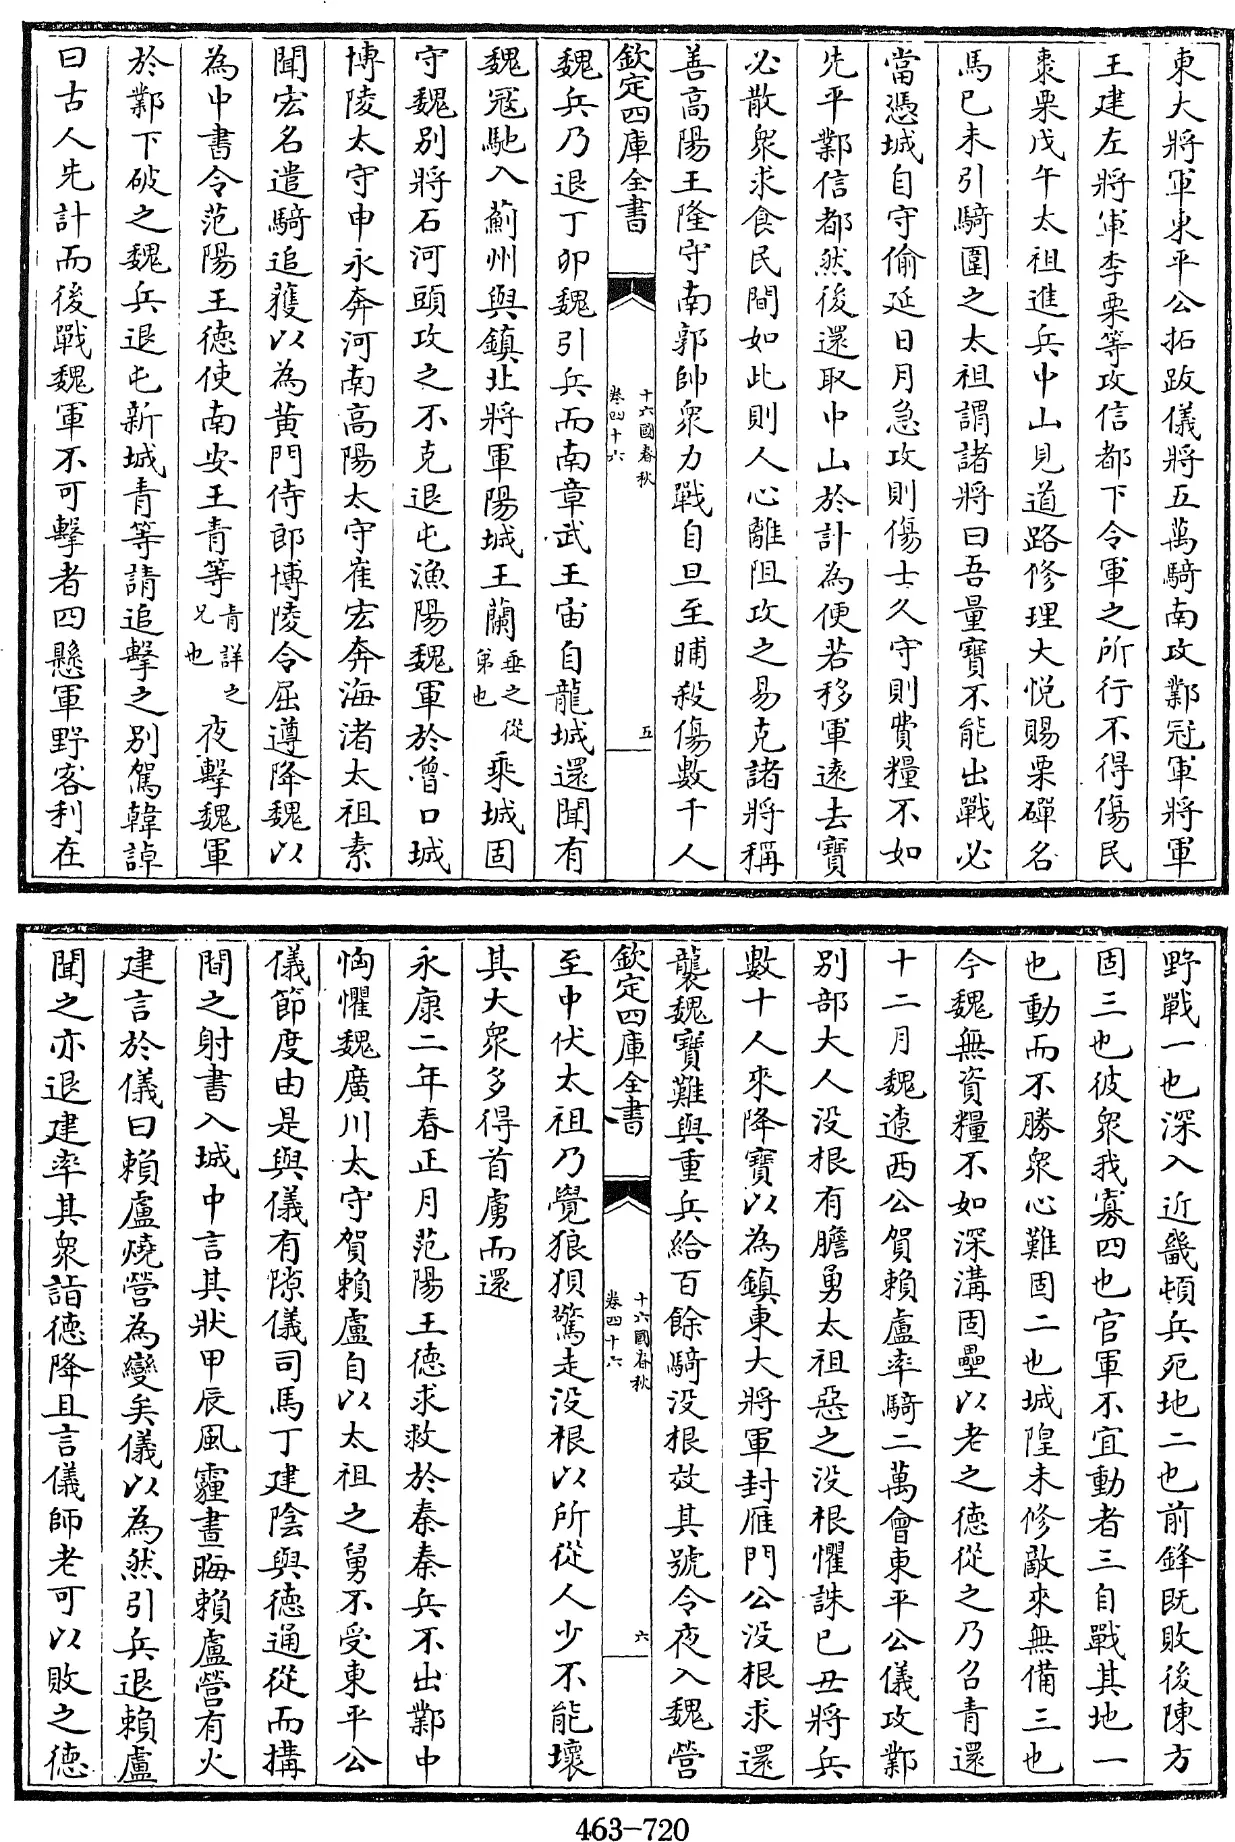 東大將軍東平公拓跋儀將五萬騎南攻鄴冠軍將軍
王建左將軍李栗等攻信都下令軍之所行不得傷民
棗栗戊午太祖進兵中山見道路修理大悅賜栗磾名
馬已未引騎圍之太祖謂諸將曰吾量寶不能出戰必
當憑城自守偷延日月急攻則傷士久守則費糧不如
先平鄴信都然後還取中山於計為便若移軍遠去寶
必散衆求食民間如此則人心離阻攻之易克諸將稱
善高陽王隆守南郭帥衆力戰自旦至晡殺傷數千人
欽定四庫全書
十六國春秋
卷四十六
五
魏兵乃退丁卯魏引兵而南章武王宙自龍城還聞有
魏冦馳入薊州與鎮北將軍陽城王蘭垂之從弟也乘城固
守魏别將石河頭攻之不克退屯漁陽魏軍於魯口城
博陵太守申永奔河南高陽太守崔宏奔海渚太祖素
聞宏名遣騎追獲以為黄門侍郎博陵令屈遵降魏以
為中書令范陽王德使南安王青等青詳之兄也夜擊魏軍
於鄴下破之魏兵退屯新城青等請追擊之别駕韓𧨳
曰古人先計而後戰魏軍不可擊者四懸軍野客利在
野戰一也深入近畿頓兵死地二也前鋒既敗後陳方
固三也彼衆我寡四也官軍不宜動者三自戰其地一
也動而不勝衆心難固二也城隍未修敵來無備三也
今魏無資糧不如深溝固壘以老之德從之乃召青還
十二月魏遼西公賀賴盧率騎二萬會東平公儀攻鄴
别部大人没根有膽勇太祖惡之没根懼誅已丑將兵
數十人來降寶以為鎮東大將軍封雁門公没根求還
襲魏寶難與重兵給百餘騎没根效其號令夜入魏營
欽定四庫全書
十六國春秋
卷四十六
六
至中伏太祖乃覺狼狽驚走没根以所從人少不能壞
其大衆多得首虜而還
永康二年春正月范陽王德求救於秦秦兵不出鄴中
恟懼魏廣川太守賀賴盧自以太祖之舅不受東平公
儀節度由是與儀有隙儀司馬丁建陰與德通從而搆
間之射書入城中言其狀甲辰風霾晝晦賴盧營有火
建言於儀曰賴盧燒營為變矣儀以為然引兵退賴盧
聞之亦退建率其衆詣德降且言儀師老可以敗之德
463-720